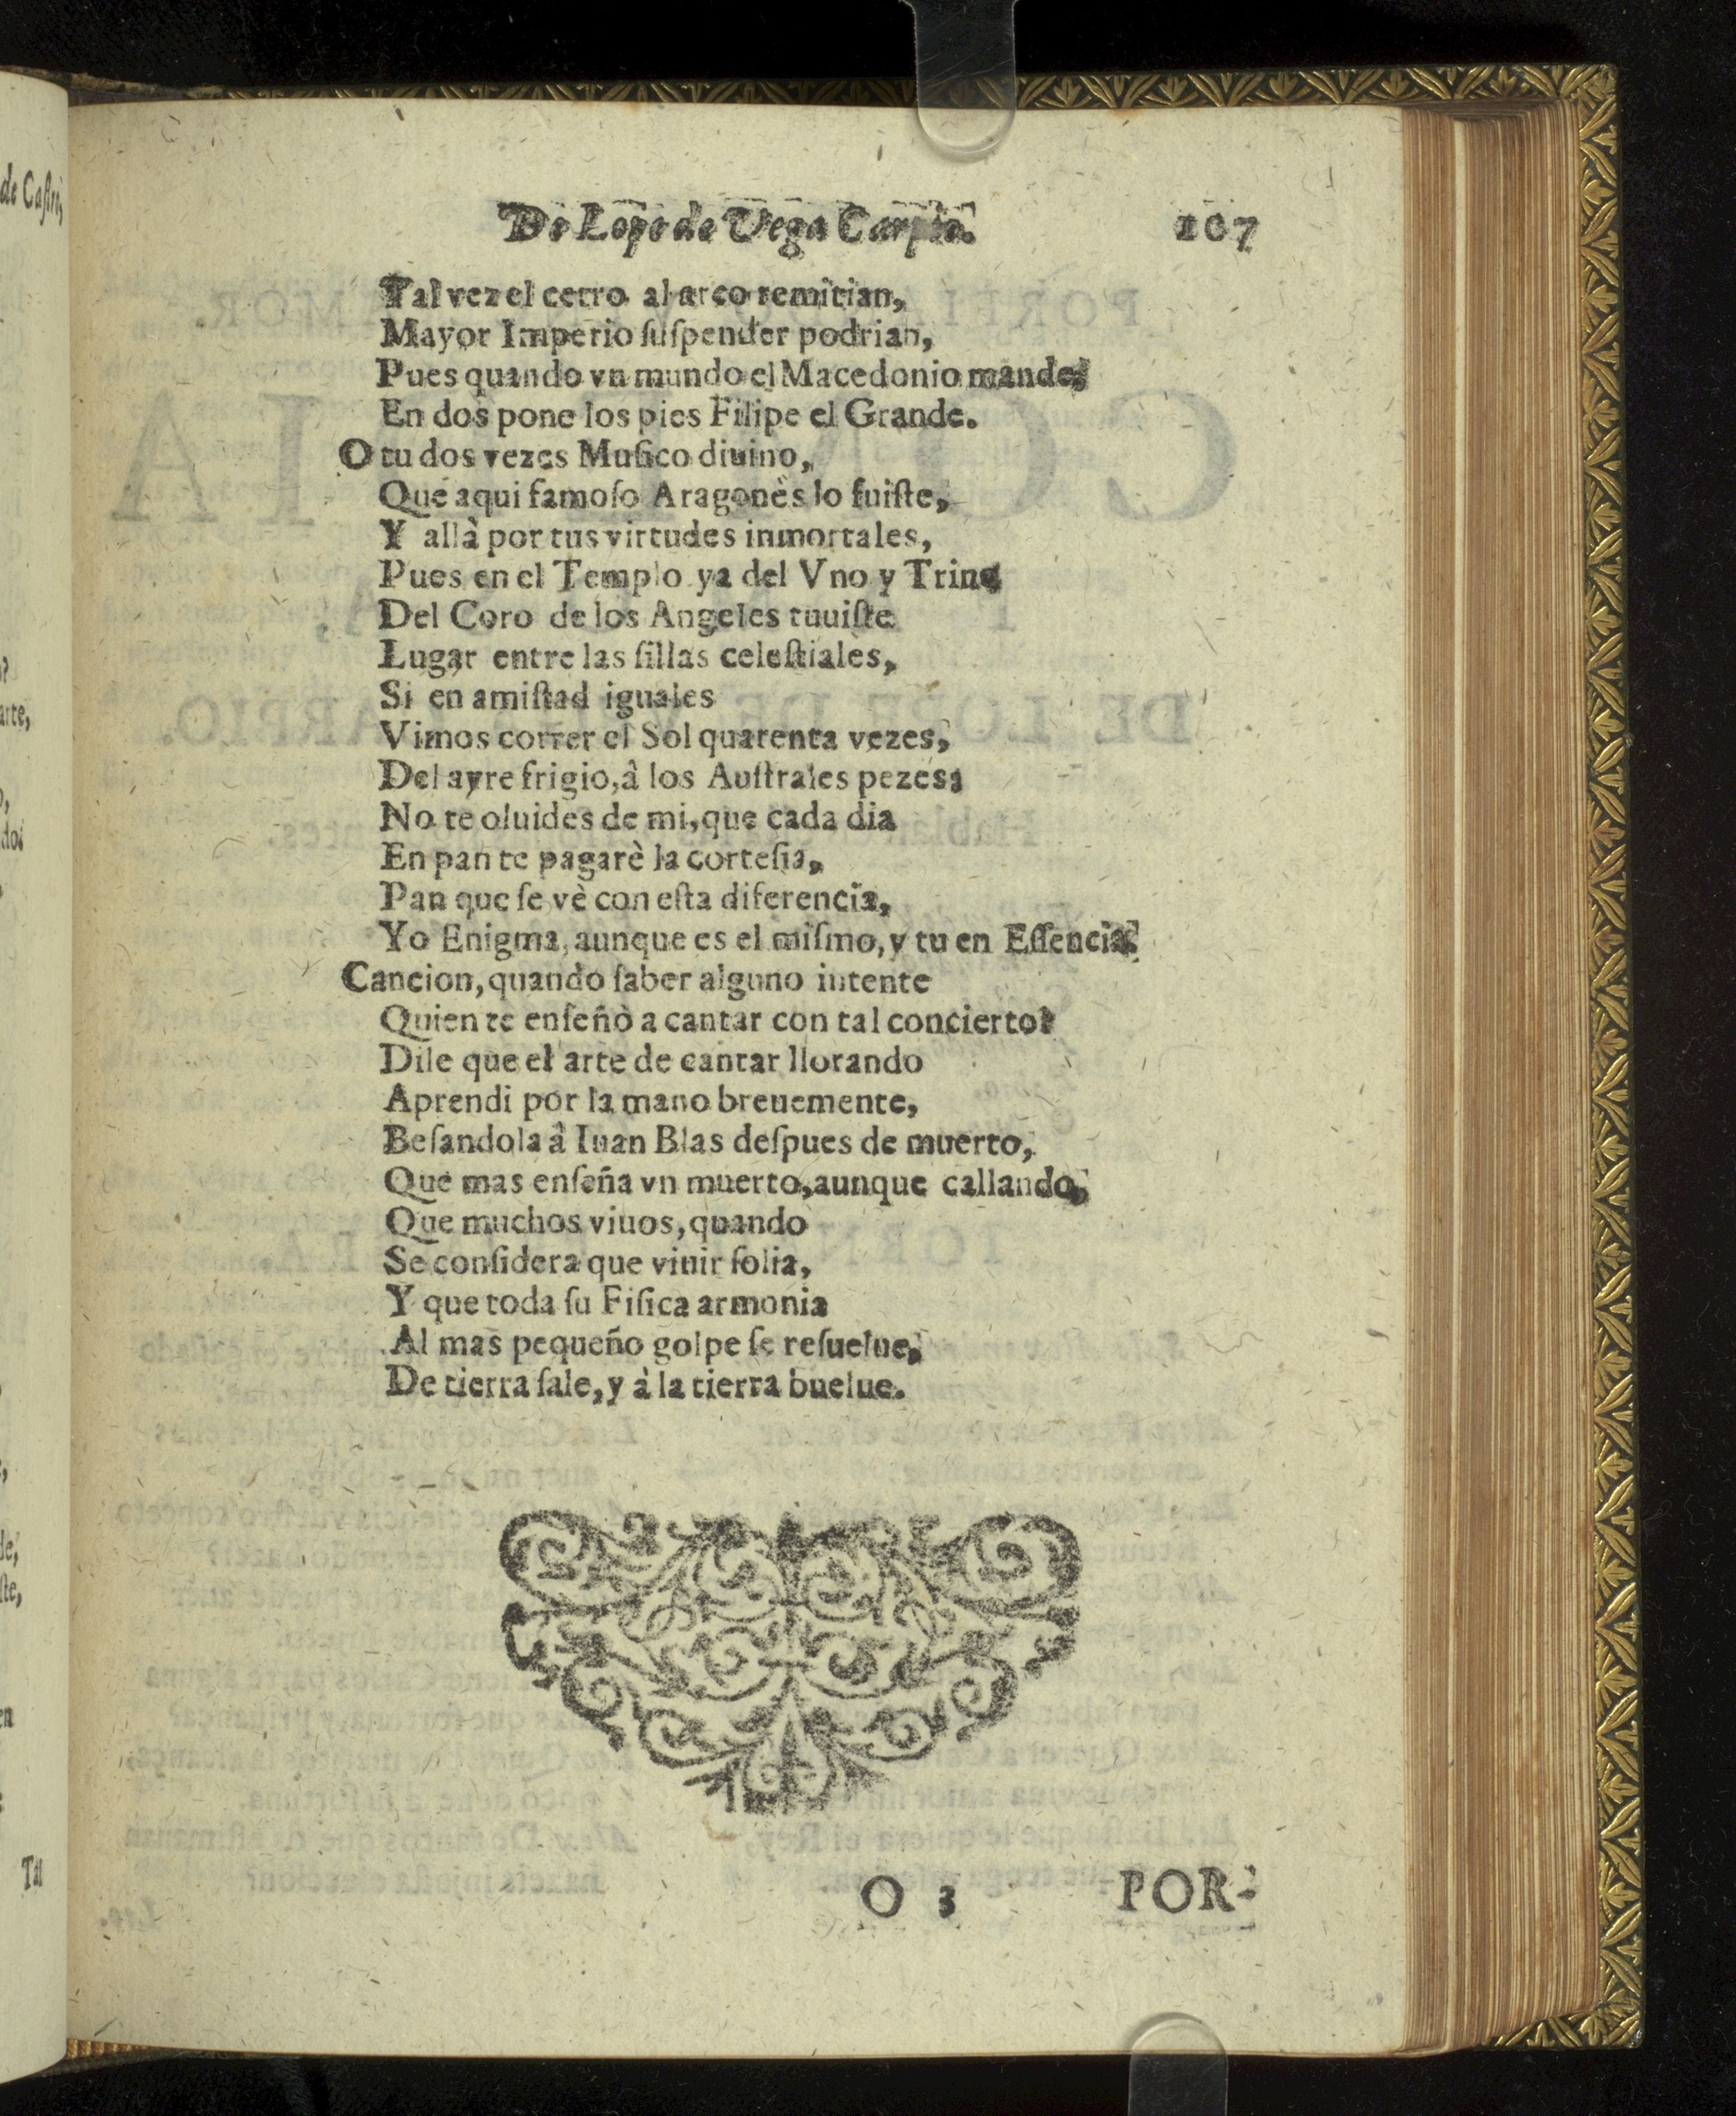 De Lope de Vega Carpio. 107
Tal vez el cetro al arco remitian,
Mayor Imperio ſuſpender podrian,
Pues quando vn mundo el Macedonio mande,
En dos pone los pies Filipe el Grande.
O tu dos vezes Muſico diuino,
Que aqui famoſo Aragonès lo fuiſte,
Y allà por tus virtudes inmortales,
Pues en el Templo ya del Vno y Trino
Del Coro de los Angeles tuuiſte
Lugar entre las ſillas celeſtiales,
Si en amiſtad iguales
Vimos correr el Sol quarenta vezes,
Del ayre frigio, â los Auſtrales pezes;
No te oluides de mi, que cada dia
En pan te pagarè la corteſia,
Pan que ſe vè con eſta diferencia,
Yo Enigma, aunque es el miſmo, y tu en Eſſencia.
Cancion, quando ſaber alguno intente
Quien te enſeñò a cantar con tal concierto?
Dile que el arte de cantar llorando
Aprendi por la mano breuemente,
Beſandola â Iuan Blas deſpues de muerto,
Que mas enſeña vn muerto, aunque callando,
Que muchos viuos, quando
Se conſidera que viuir ſolia,
Y que toda ſu Fiſica armonia
Al mas pequeño golpe ſe reſuelue,
De tierra ſale, y à la tierra buelue.
O 3 POR-
de Caſtro,
arte,
Tal